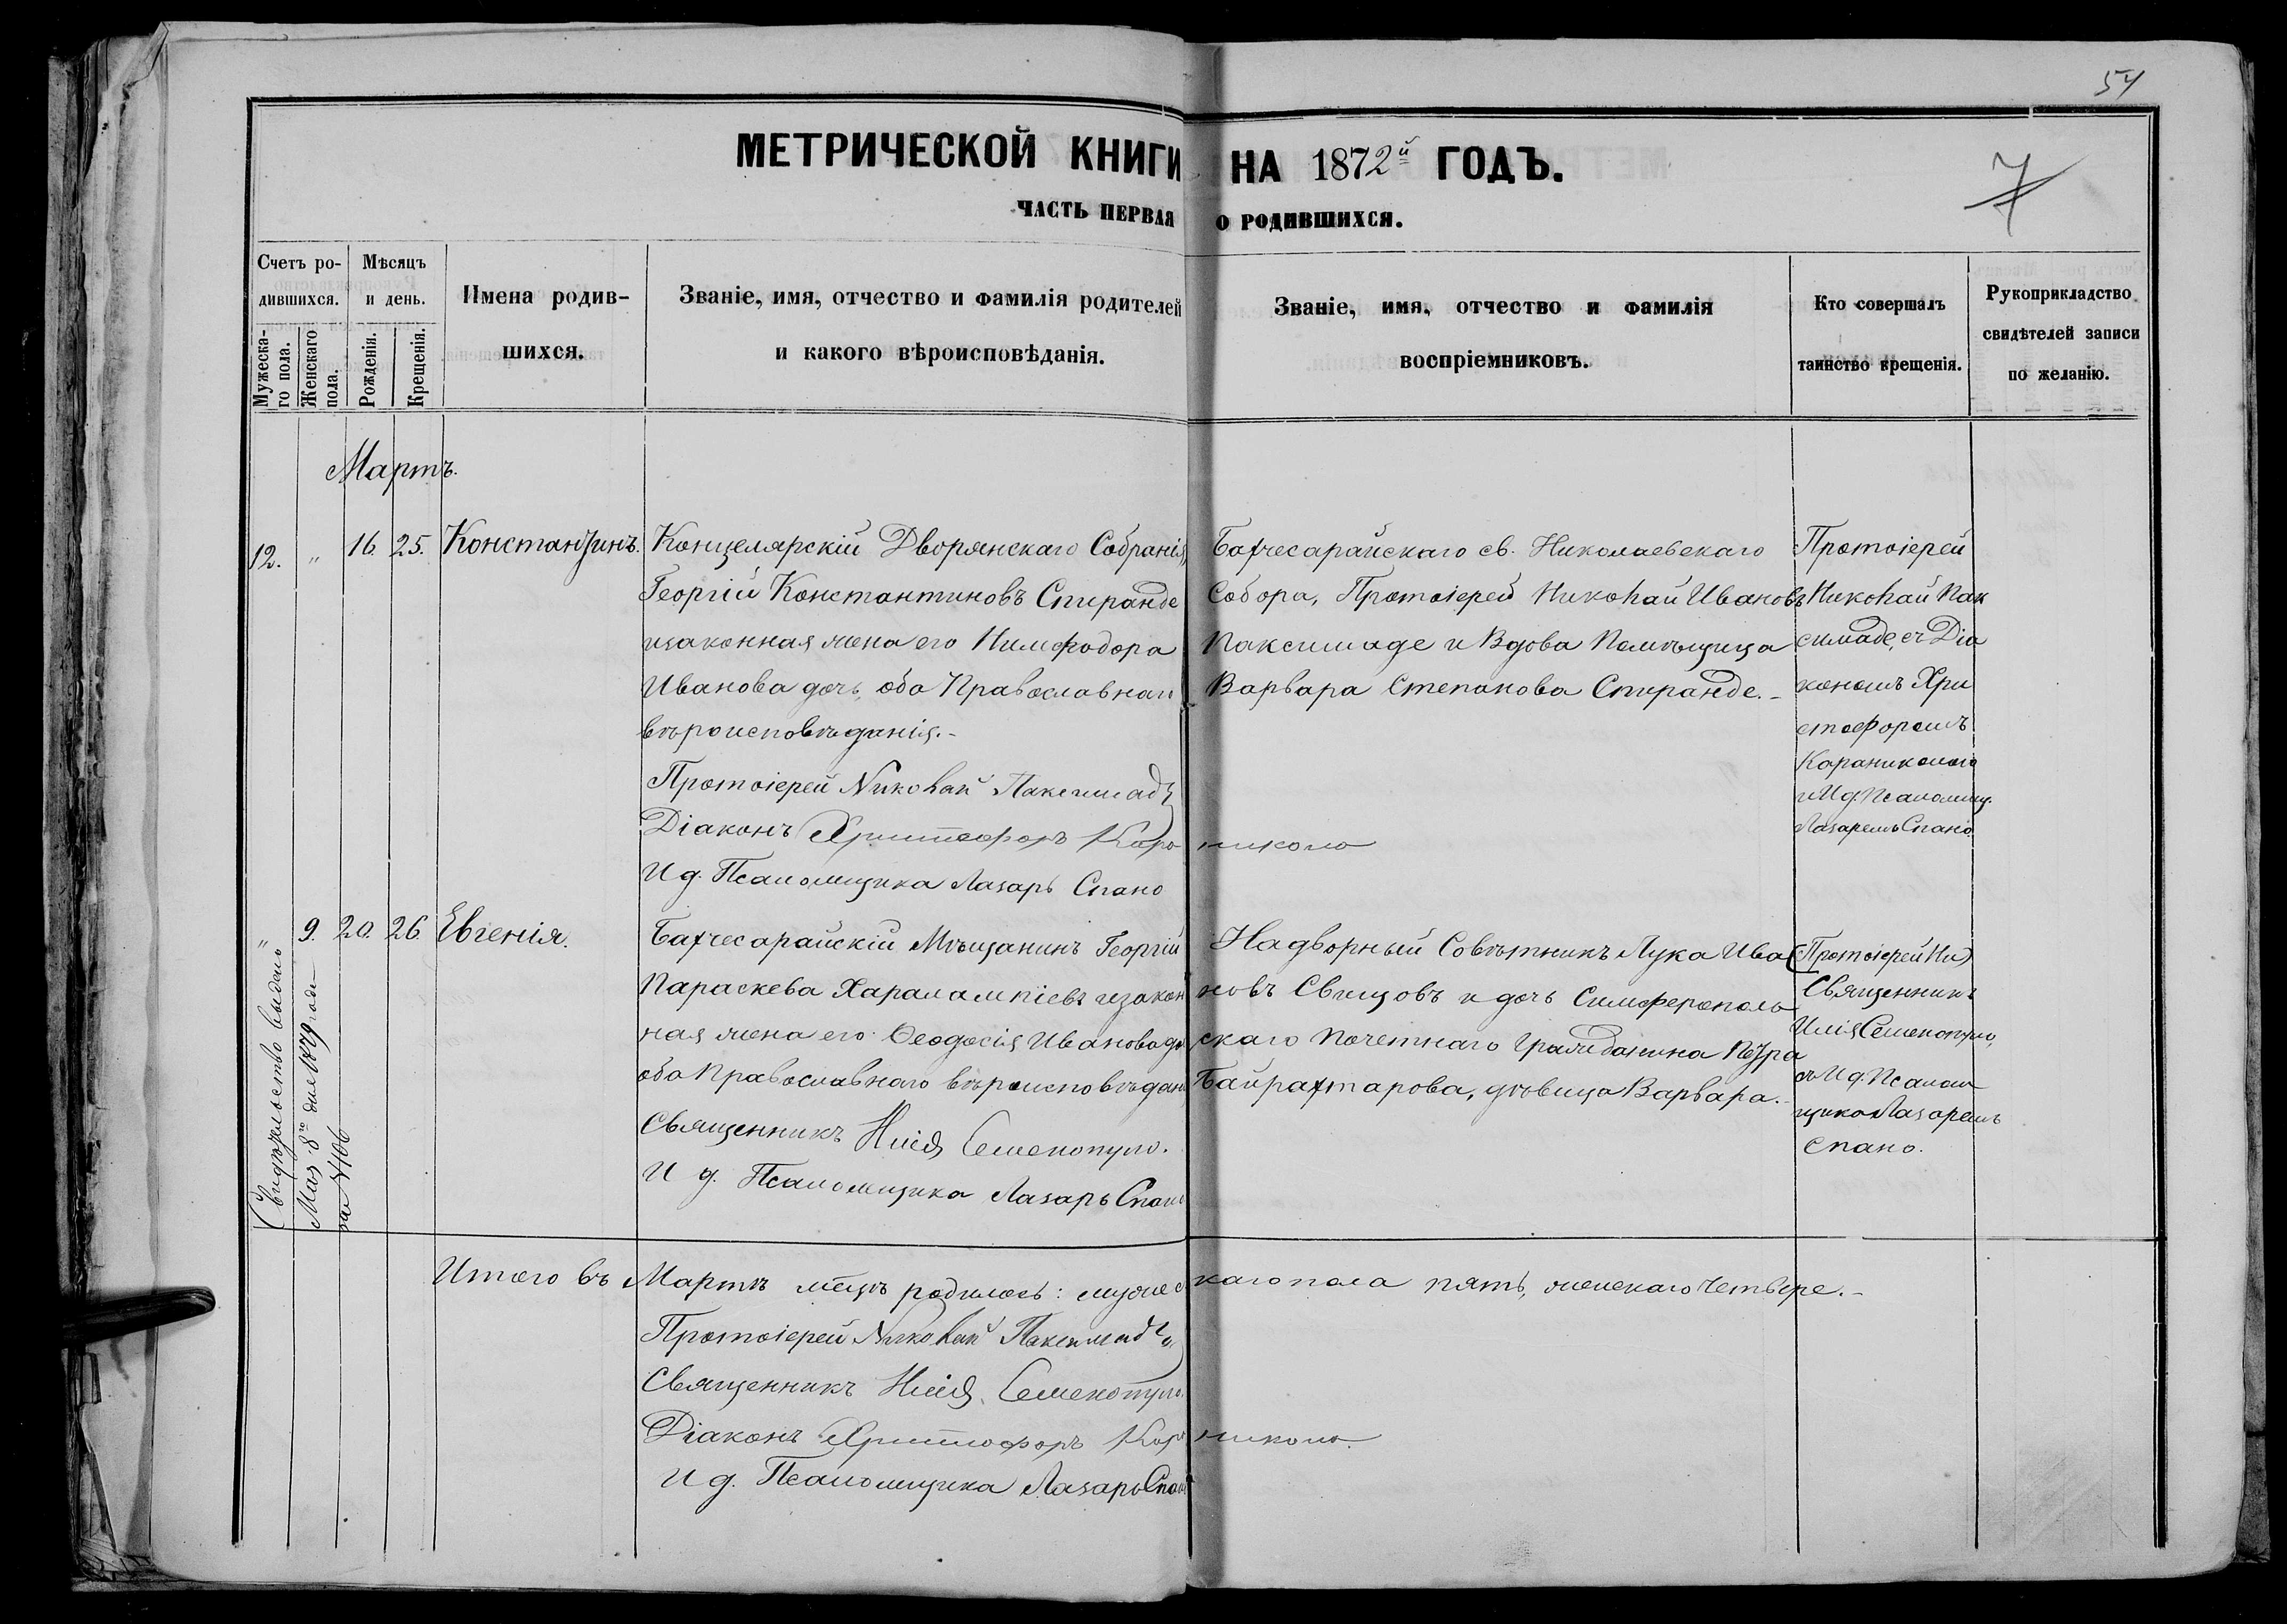 54
МЕТРИЧЕСКОЙ КНИГИ НА 1872й ГОДЪ.
7
ЧАСТЬ ПЕРВАЯ О РОДИВШИХСЯ.
Счетъ ро-
дившихся.
Мужеска-
го пола.
Женскаго
пола.
Мѣсяцъ
и день.
Рожденія.
Крещенія.
Имена родив-
шихся.
Званіе, имя, отчество и фамилія родителей
и какого вѣроисповѣданія.
Званіе, имя, отчество и фамилія
воспріемниковъ.
Кто совершалъ
таинство крещенія.
Рукоприкладство
свидѣтелей записи
по желанію.
Мартъ.
12. " 16. 25. Константинъ.
Канцелярскій Дворянскаго Собранія,
Георгій Константиновъ Спиранде
изаконная жена его Нимфодора
Иванова дочь, оба Православнаго
вѣроисповѣданія.-
Протоіерей Николай Паксимаде
Діаконъ Христофоръ Караниколо
И д. Псаломщика Лазарь Спано
Бахчесарайскаго св. Николаевскаго
Собора, Протоіерей Николай Ивановъ
Паксимаде и Вдова Помѣщица
Варвара Степанова Спиранде.-
Протоіерей
Николай Пак
симаде, съ Діа
кономъ Хри
стофоромъ
Караниколого
и И д. Псаломщ.
Лазаремъ Спано.
" 9. 20. 26. Евгенія.
Бахчесарайскій Мѣщанинъ Георгій
Параскева Харалампіевъ изакон
ная жена его Ѳеодосія Иванова до
оба Православнаго вѣроисповѣдан
Священникъ Илія Семенопуло.
И д. Псаломщика Лазарь Спано
Надворный Совѣтникъ Лука Ива
новъ Свищовъ и дочь Симферополь
скаго Почетнаго Гражданина Петра
Байрахтарова, дѣвица Варвара.-
(Протоіерей Ни)
Священникъ
Илія Семенопуло,
съ И д. Псалом
щика Лазаремъ
Спано.
Свидѣтельство выдано
Мая 8го дня 1879 года
за № 106
Итого въ Мартѣ мѣцѣ родилось: мужескаго пола пять, женскаго четверо.-
Протоіерей Николай Паксимаде
Священникъ Илія Семенопуло.
Діаконъ Христофоръ Караниколо.
И д. Псаломщика Лазарь Спано